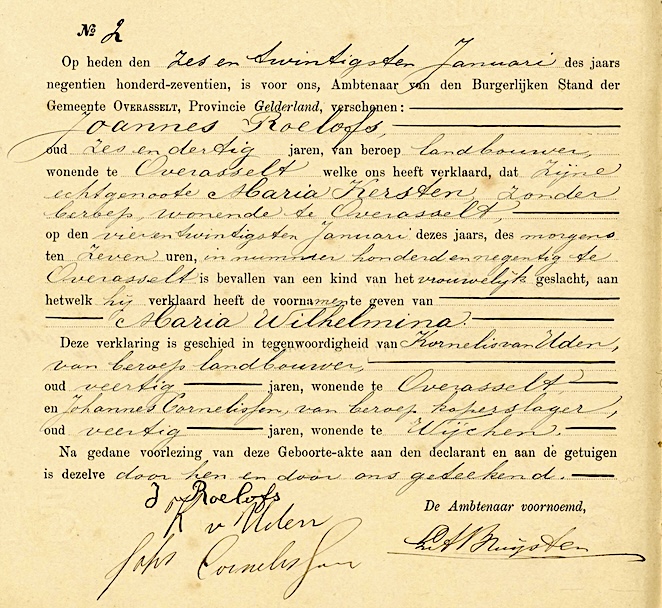 № 2
Op heden den zes en twintigsten Januari des jaars
negentien honderd-zeventien, is voor ons, Ambtenaar van den Burgerlijken Stand der
Gemeente OVERASSELT, Provincie Gelderland, verschenen:
Joannes Roelofs,
oud zes en dertig jaren, van beroep landbouwer,
wonende te Overasselt welke ons heeft verklaard, dat zijne
echtgenoote Maria Kersten, zonder
beroep, wonende te Overasselt,
op den vier en twintigsten Januari dezes jaars, des morgens
ten zeven uren, in nummer honderd en negentig te
Overasselt is bevallen van een kind van het vrouwelijk geslacht, aan
hetwelk hij verklaard heeft de voornamen te geven van
Maria Wilhelmina.
Deze verklaring is geschied in tegenwoordigheid van Kornelis van Uden,
van beroep landbouwer,
oud veertig jaren, wonende te Overasselt
en Johannes Cornelissen, van beroep koperslager,
oud veertig jaren, wonende te Wijchen.
Na gedane voorlezing van deze Geboorte-akte aan den declarant en aan de getuigen
is dezelve door hen en door ons geteekend.
J Roelofs
K v Uden
De Ambtenaar voornoemd,
Joh Cornelissen